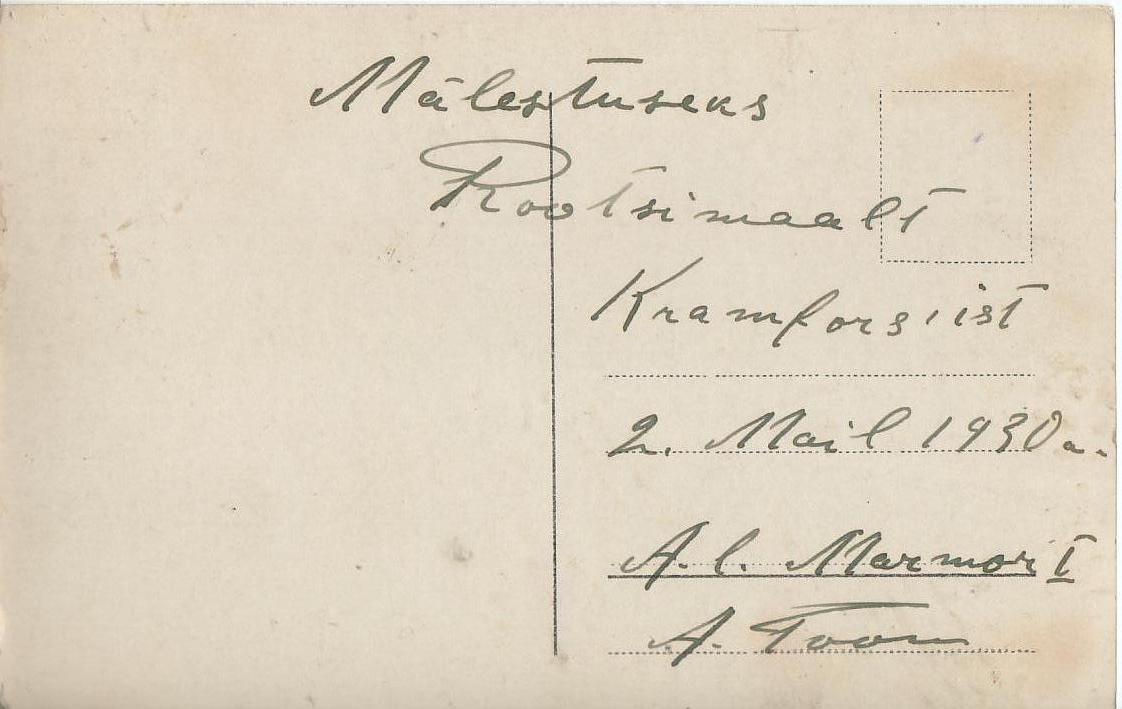 Mälestuseks
Rootsimaalt
Kramfors'ist
2. Mail 1930 a.
A. l. Marmor I
A. Toom